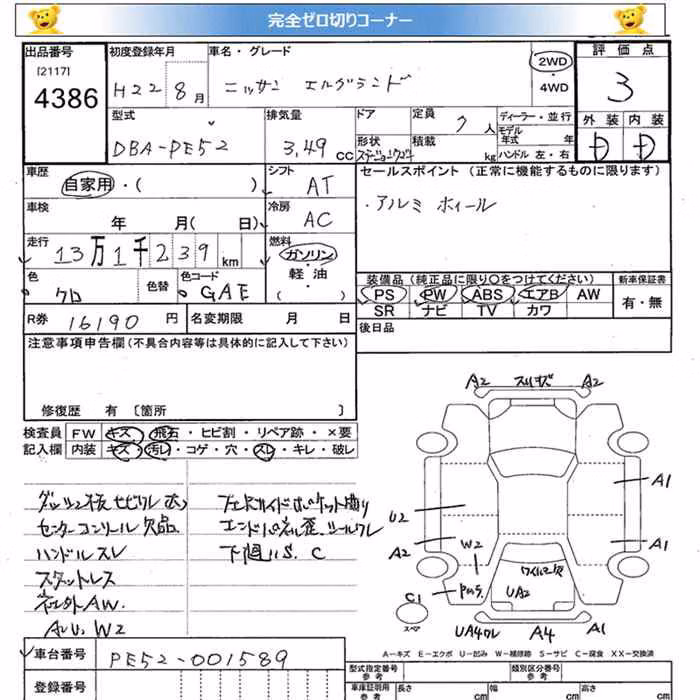 完全ゼロ切りコーナー
出品番号
[2117]
4386
初度登録年月
H22 8月
車名・グレード
ニッサン エルグランド
2WD
・4WD
評価点
3
外装 内装
D D
型式
DBA-PE52
排気量
3,49 CC
ドア
形状
定員
7人
積載
kg
ディーラー・並行
モデル年式 年
ハンドル 左・右
車歴
自家用・( )
シフト
AT
セールスポイント (正常に機能するものに限ります)
・アルミ ホイール
車検
年 月(日)
冷房
AC
走行
13万1千239km
燃料
ガソリン・
軽油・
( )
色
クロ
色替
色コード
GAE
装備品 (純正品に限り○をつけてください)
PS PW ABS エアB AW
SR ナビ TV カワ
新車保証書
有・無
R券 16190円
名変期限 月 日
後日品
注意事項申告欄 (不具合内容等は具体的に記入して下さい)
修復歴 有〔箇所 〕
検査員
記入欄
FW キズ・飛石・ヒビ割・リペア跡・×要
内装 キズ・汚レ・コゲ・穴・スレ・キレ・破レ
センターコンソール欠品
ハンドルスレ
スタットレス
AW.
W2
下廻りS. C
A2 A2
A1
U2
A2
W2
A1
UA2
C1
スペア
A4
A1
A-キズ E-エクボ U-凹み W-補修跡 S-サビ C-腐食 XX-交換済
車台番号
PE52-001589
登録番号
型式指定番号
参考
類別区分番号
参考
車庫証明用
参考
長さ cm
幅 cm
高さ cm